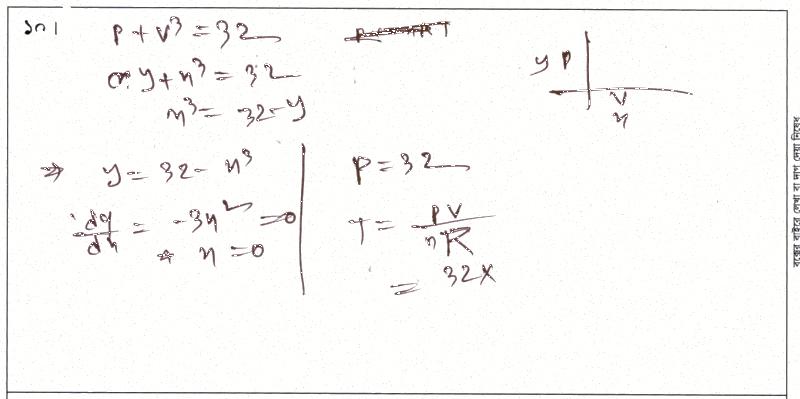 ১৩।
P + V³ = 32
or, y + x³ = 32
x³ = 32 - y
⇒ y = 32 - x³
dy/dx = -3x² = 0
x = 0
P = 32
T = PV/nR
= 32×
y P
V
x
বক্সের বাইরে লেখা বা দাগ দেয়া নিষেধ